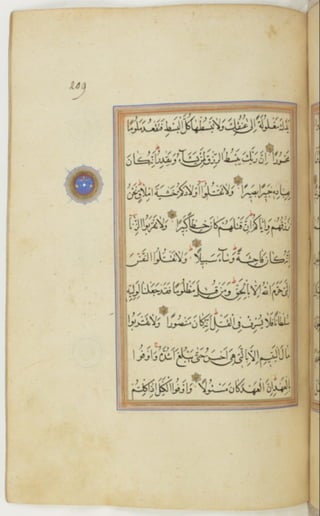 209
يَدَكَ مَغْلُولَةً إِلَى عُنُقِكَ وَلَا تَبْسُطْهَا كُلَّ الْبَسْطِ فَتَقْعُدَ مَلُومًا
مَحْسُورًا إِنَّ رَبَّكَ يَبْسُطُ الرِّزْقَ لِمَنْ يَشَاءُ وَيَقْدِرُ إِنَّهُ كَانَ
بِعِبَادِهِ خَبِيرًا بَصِيرًا وَلَا تَقْتُلُوا أَوْلَادَكُمْ خَشْيَةَ إِمْلَاقٍ نَحْنُ
نَرْزُقُهُمْ وَإِيَّاكُمْ إِنَّ قَتْلَهُمْ كَانَ خِطْأً كَبِيرًا وَلَا تَقْرَبُوا الزِّنَا
إِنَّهُ كَانَ فَاحِشَةً وَسَاءَ سَبِيلًا وَلَا تَقْتُلُوا النَّفْسَ
الَّتِي حَرَّمَ اللهُ إِلَّا بِالْحَقِّ وَمَنْ قُتِلَ مَظْلُومًا فَقَدْ جَعَلْنَا لِوَلِيِّهِ
سُلْطَانًا فَلَا يُسْرِفْ فِي الْقَتْلِ إِنَّهُ كَانَ مَنْصُورًا وَلَا تَقْرَبُوا
مَالَ الْيَتِيمِ إِلَّا بِالَّتِي هِيَ أَحْسَنُ حَتَّى يَبْلُغَ أَشُدَّهُ وَأَوْفُوا
بِالْعَهْدِ إِنَّ الْعَهْدَ كَانَ مَسْئُولًا وَأَوْفُوا الْكَيْلَ إِذَا كِلْتُمْ